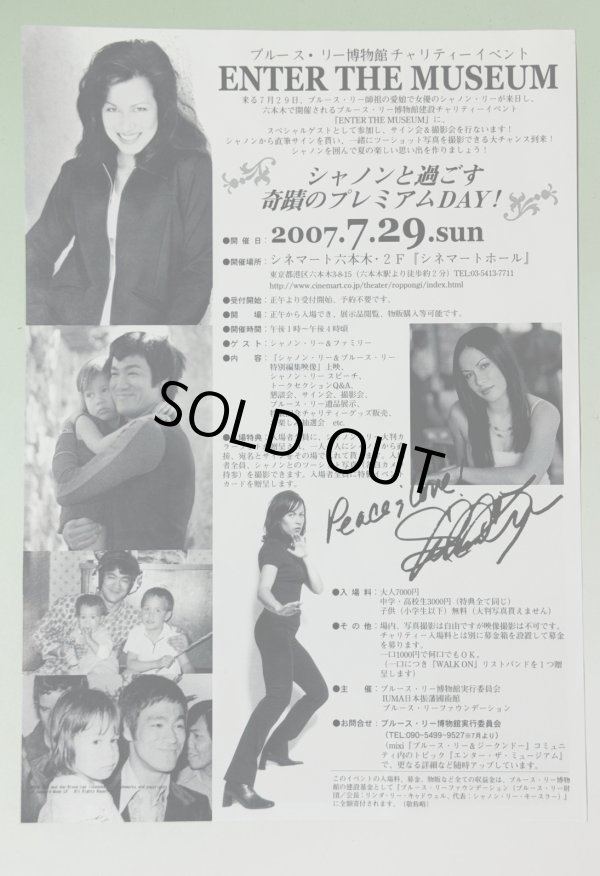 ブルース・リー博物館 チャリティーイベント
ENTER THE MUSEUM
来る7月29日、ブルース・リー師祖の愛娘で女優のシャノン・リーが来日し、
六本木で開催されるブルース・リー博物館建設チャリティーイベント
『ENTER THE MUSEUM』に、
スペシャルゲストとして参加し、サイン会&撮影会を行ないます!
シャノンから直筆サインを貰い、一緒にツーショット写真を撮影できる大チャンス到来!
シャノンを囲んで夏の楽しい思い出を作りましょう!
シャノンと過ごす
奇蹟のプレミアムDAY!
●開催日: 2007.7.29.sun
●開催場所: シネマート六本木・2F『シネマートホール』
東京都港区六本木3-8-15(六本木駅より徒歩約2分)TEL:03-5413-7711
http://www.cinemart.co.jp/theater/roppongi/index.html
●受付開始: 正午より受付開始、予約不要です。
●開 場: 正午から入場でき、展示品閲覧、物販購入等可能です。
●開催時間: 午後1時〜午後4時頃
●ゲスト: シャノン・リー&ファミリー
●内 容: 『シャノン・リー&ブルース・リー
特別編集映像』上映、
シャノン・リー スピーチ、
トークセクションQ&A、
懇談会、サイン会、撮影会、
ブルース・リー遺品展示、
チャリティーグッズ販売、
抽選会 etc.
SOLD OUT
場特典: 入場者全員に、シャノン・リー大判カ
接、宛名とサインをその場で
者全員、シャノンとのツーショット写真
持参)を撮影できます。入場者全員に特製イベン
カードを贈呈します。
Peace & Love
●入場料: 大人7000円
中学・高校生3000円(特典全て同じ)
子供(小学生以下)無料(大判写真貰えません)
●その他: 場内、写真撮影は自由ですが映像撮影は不可です。
チャリティー入場料とは別に募金箱を設置して募金
を募ります。
一口1000円で何口でもOK。
(一口につき「WALK ON」リストバンドを1つ贈
呈します)
●主 催: ブルース・リー博物館実行委員会
IUMA日本振藩國術館
ブルース・リーファウンデーション
●お問合せ: ブルース・リー博物館実行委員会
(TEL:090-5499-9527※7月より)
(mixi『ブルース・リー&ジークンドー』コミュニ
ティ内のトピック『エンター・ザ・ミュージアム』
で、更なる詳細など随時アップしています。
このイベントの入場料、募金、物販など全ての収益金は、ブルース・リー博物
館の建設基金として『ブルース・リーファウンデーション(ブルース・リー財
団/会長:リンダ・リー・キャドウェル、代表:シャノン・リー・キースラー)』
に全額寄付されます。(敬称略)